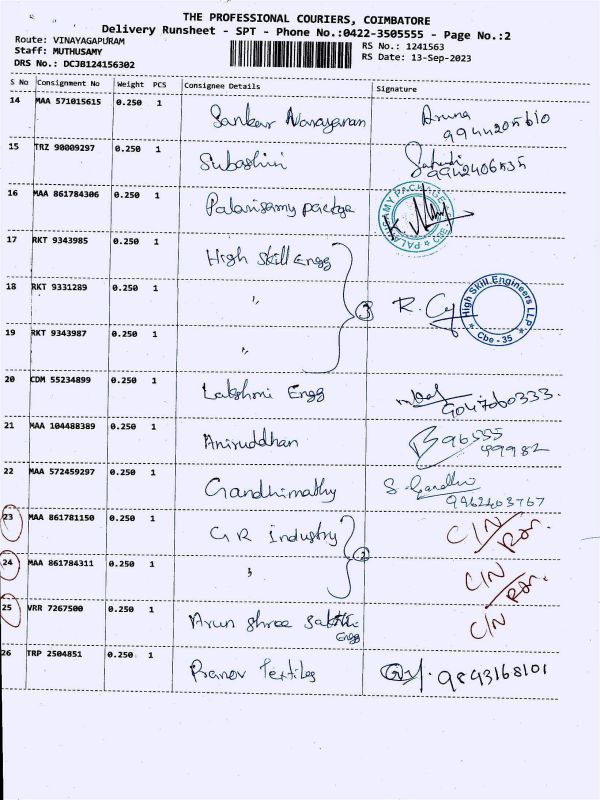 THE PROFESSIONAL COURIERS, COIMBATORE
Delivery Runsheet - SPT - Phone No.:0422-3505555 - Page No.:2
Route: VINAYAGAPURAM
Staff: MUTHUSAMY
DRS No.: DCJB124156302
RS No.: 1241563
RS Date: 13-Sep-2023
S No Consignment No Weight PCS Consignee Details Signature
14 MAA 571015615 0.250 1 Sankar Narayanan Aruna
9944205610
15 TRZ 90009297 0.250 1 Subashini
9942406535
16 MAA 861784306 0.250 1 Palanisamy packge
PALANISAMY PACKAGES CBE
17 RKT 9343985 0.250 1 High Skill Engg
18 RKT 9331289 0.250 1 " 3 R.
High Skill Engineers LLP
* Cbe - 35 *
19 RKT 9343987 0.250 1 "
20 CDM 55234899 0.250 1 Lakshmi Engg
9047060333
21 MAA 104488389 0.250 1 Aniruddhan 96555
49982
22 MAA 572459297 0.250 1 Gandhimathy S. Gandhi
9962403767
23 MAA 861781150 0.250 1 G R industry C/N
24 MAA 861784311 0.250 1 " 2 C/N
25 VRR 7267500 0.250 1 Arun shree Sakthi C/N
Engg
26 TRP 2504851 0.250 1 Pranov Textiles 9843168101